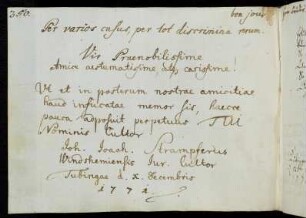 350.
bon jour
Per varios casus, per tot discrimina rerum.
Vir Praenobilissime
Amice aestumatissime, atq carissime!
Ut et in posterum nostrae amicitiae
haud infucatae memor sis, haecce
pauca adposuit perpetuus TUI
Nominis Cultor
Joh. Joach.
Windshemiensis Jur. Cultor
Tubingae d. X. Decembris
1772